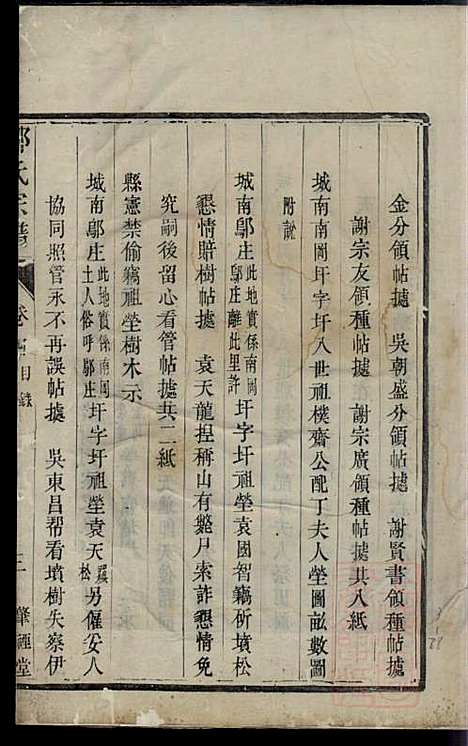 金分領帖據　吳朝盛分領帖據　謝賢書領種帖據
謝宗友領種帖據　謝宗廣領種帖據共八紙
城南南圖圩字圩八世祖樸齋公配丁夫人塋圖畝數圖
附説
城南鄔庄此地實係南圖鄔庄離此里許圩字圩祖塋袁國智竊斫墳松
懇情賠樹帖據　袁天龍揑稱山有斃尸索詐懇情免
究嗣後留心看管帖據共二紙
縣憲禁偷竊祖塋樹木示
城南鄔庄此地實係南圖土人俗呼鄔庄圩字圩祖塋袁天松另僱安人
協同照管永不再誤帖據　吳東昌帮看墳樹失察伊
氏宗譜　卷　目錄　肇禋堂